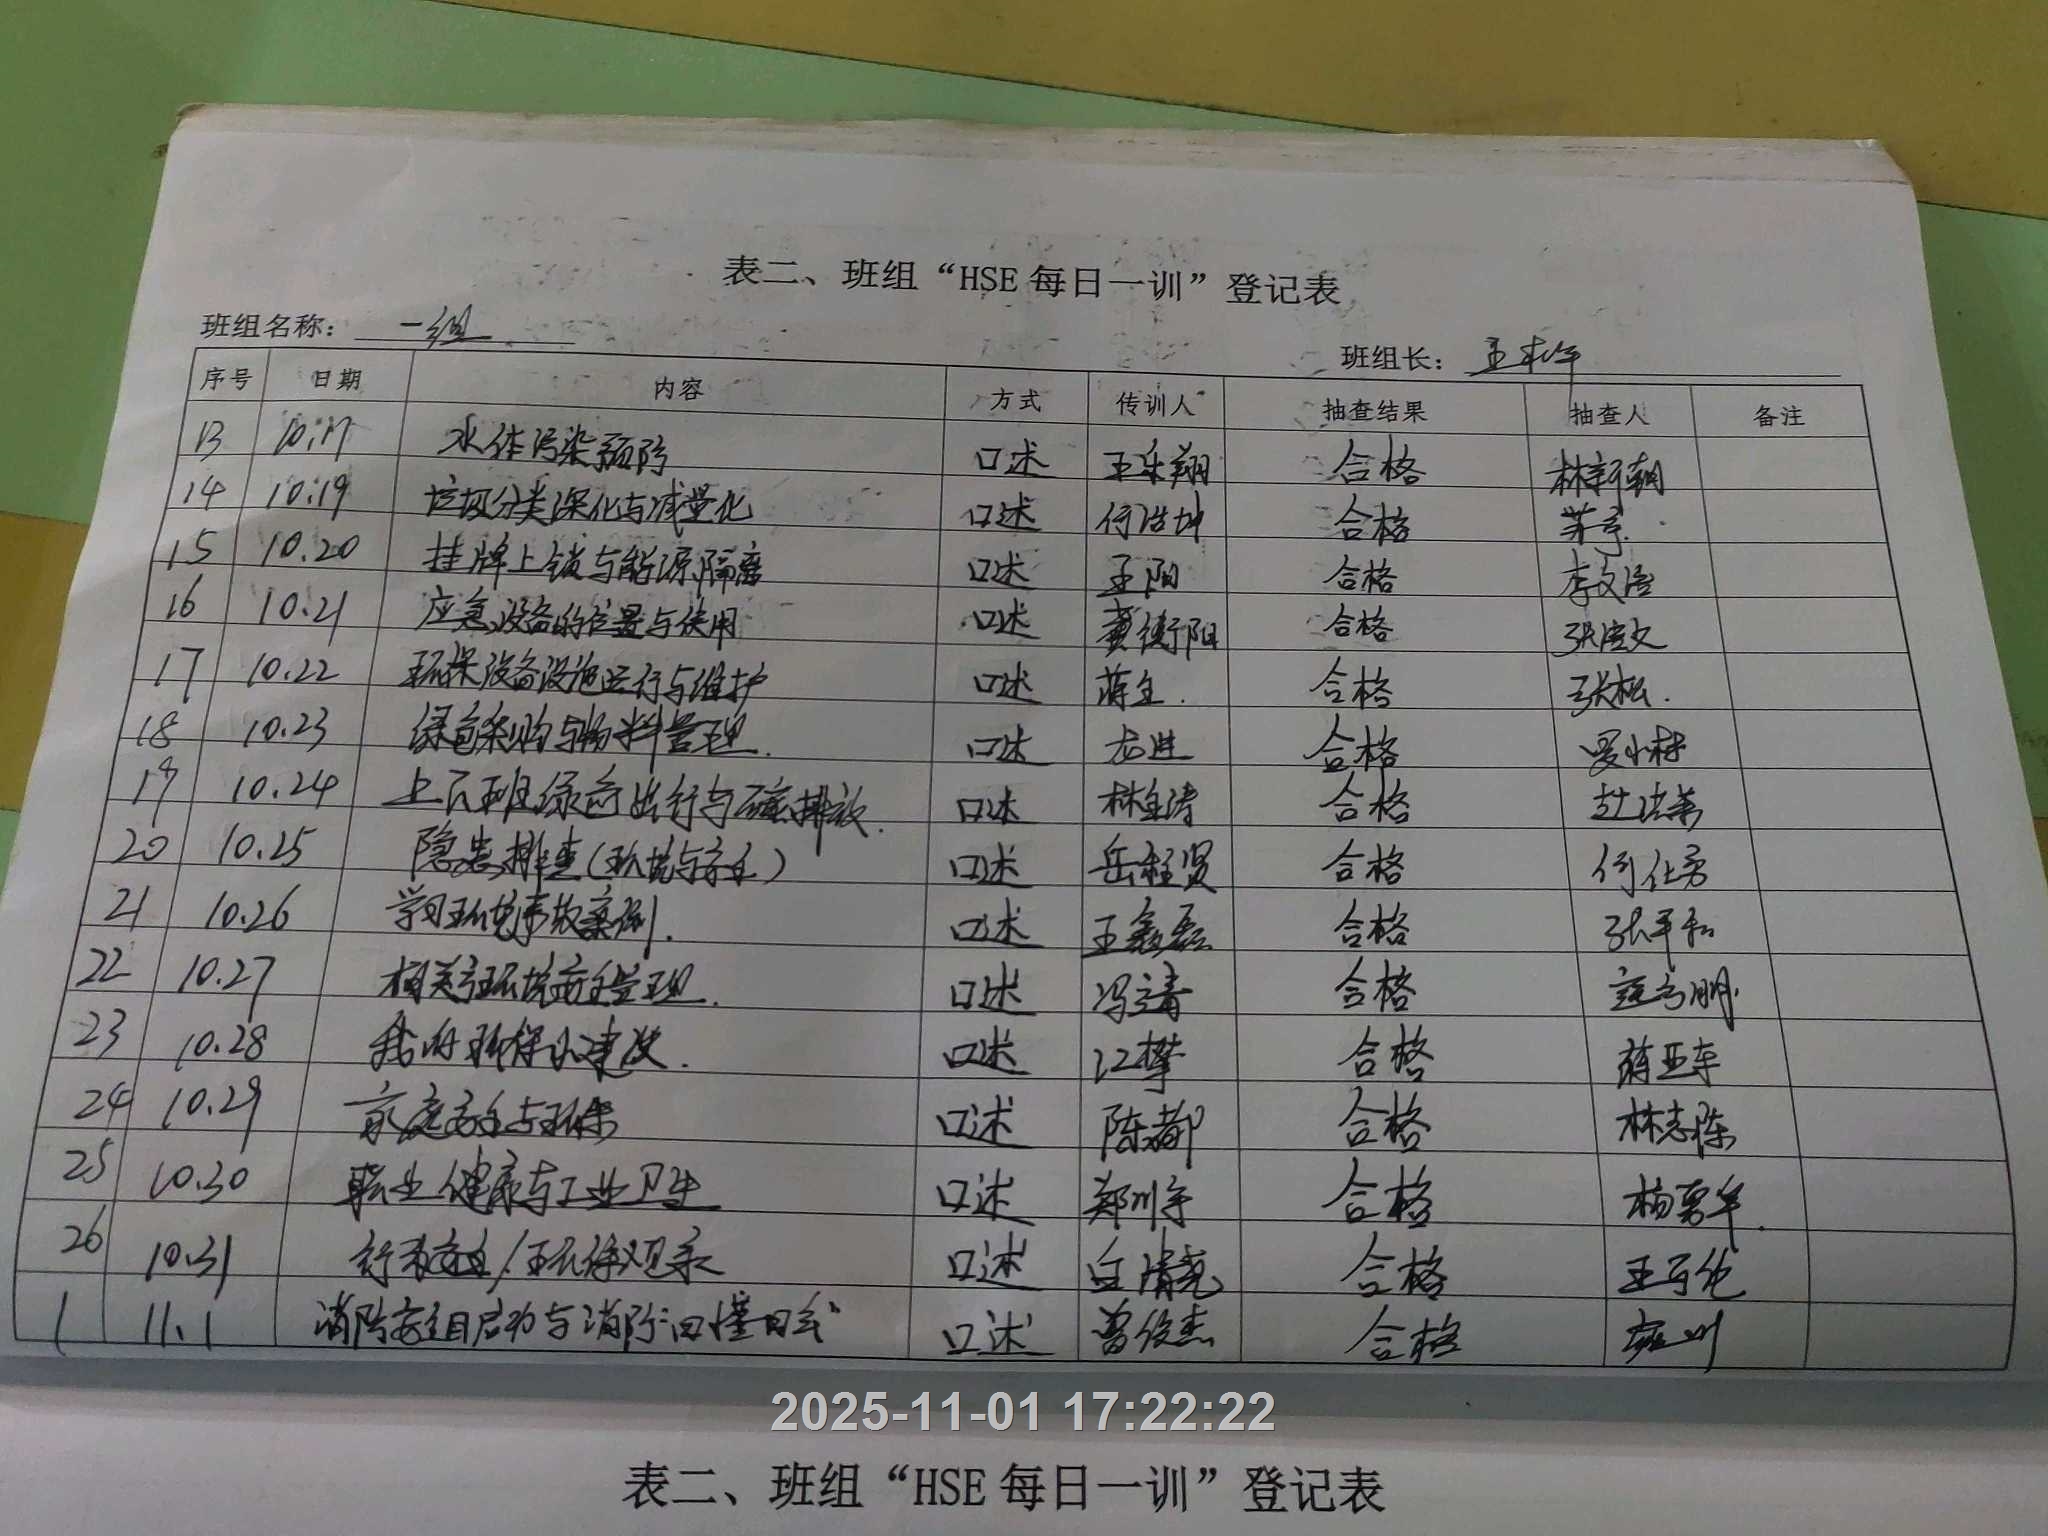 表二、班组“HSE每日一训”登记表
班组名称： 一组
班组长： 王
序号 日期 内容 方式 传训人 抽查结果 抽查人 备注
13 10.17 水体污染预防 口述 王乐翔 合格 林新朝
14 10.19 垃圾分类深化与减量化 口述 何浩坤 合格
15 10.20 挂牌上锁与能源隔离 口述 孟阳 合格 李文浩
16 10.21 应急设备的位置与使用 口述 黄衡阳 合格 张宝文
17 10.22 环保设备设施运行与维护 口述 蒋全. 合格 张松.
18 10.23 绿色采购与物料管理. 口述 龙进 合格 罗小林
19 10.24 上下班绿色出行与碳排放. 口述 林金涛 合格 杜洪
20 10.25 隐患排查(环境与安全) 口述 岳程贤 合格 何仕勇
21 10.26 学习环境事故案例. 口述 王鑫磊 合格 张平和
22 10.27 相关方环境安全管理. 口述 冯立青 合格
23 10.28 我的环保小建议. 口述 江攀 合格 蒋亚东
24 10.29 家庭安全与环保 口述 陈都 合格 林志陈
25 10.30 职业健康与工业卫生 口述 郑川宇 合格 杨勇军.
26 10.31 行为安全/环保观察 口述 白清尧 合格 王
1 11.1 消防安全月启动与消防“四懂四会” 口述 曾俊杰 合格
2025-11-01 17:22:22
表二、班组“HSE每日一训”登记表